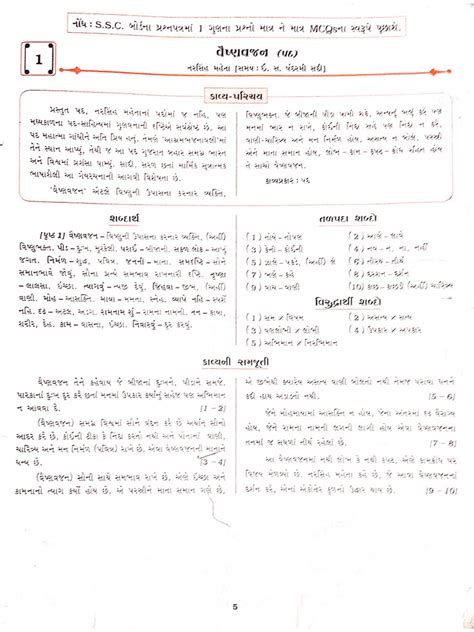 નોંધ : S.S.C. બોર્ડના પ્રશ્નપત્રમાં 1 ગુણના પ્રશ્નો માત્ર ને માત્ર MCQsના સ્વરૂપે પૂછાશે.
1
વૈષ્ણવજન (પદ)
નરસિંહ મહેતા [સમય : ઈ. સ. પંદરમી સદી]
કાવ્ય-પરિચય
પ્રસ્તુત પદ, નરસિંહ મહેતાનાં પદોમાં જ નહિ, પણ
મધ્યકાળના પદ-સાહિત્યમાં ગુણવત્તાની દૃષ્ટિએ સર્વશ્રેષ્ઠ છે. આ
પદ મહાત્મા ગાંધીને અતિ પ્રિય હતું. તેમણે 'આશ્રમભજનાવલી'માં
તેને સ્થાન આપ્યું, તેથી આ પદ ગુજરાત બહાર સમગ્ર ભારત
અને વિશ્વમાં પ્રશંસા પામ્યું. સાદી, સરળ છતાં માર્મિક સૂત્રાત્મક
ભાષાશૈલી આ ગેયરચનાની આગવી વિશેષતા છે.
'વૈષ્ણવજન' એટલે વિષ્ણુની ઉપાસના કરનાર વ્યક્તિ,
વિષ્ણુભક્ત. જે બીજાની પીડા પામી શકે, અન્યનું ભલું કરે પણ
મનમાં ભાર ન રાખે, કોઈની નિંદા ન કરે,
વાણી-ચારિત્ર્ય અને મન નિર્મળ હોય, અસત્ય ન બોલે, પરસ્ત્રી
એને મન માતા સમાન હોય, લોભ – કામ – કપટ – ક્રોધ રહિત હોય
તે સાચો વૈષ્ણવજન.
કાવ્યપ્રકાર : પદ
શબ્દાર્થ
[પૃષ્ઠ 1] વૈષ્ણવજન – વિષ્ણુની ઉપાસના કરનાર વ્યક્તિ, (અહીં)
વિષ્ણુભક્ત. પીડ – દુઃખ, મુશ્કેલી. પરાઈ – બીજાની. સકળ લોક – આખું
જગત. નિર્મળ – શુદ્ધ, પવિત્ર. જનની – માતા. સમદૃષ્ટિ – સૌને
સમાનભાવે જોવું, સૌના પ્રત્યે સમભાવ રાખનારી દૃષ્ટિ. તૃષ્ણા
– લાલસા, ઈચ્છા. ત્યાગવું – ત્યજી દેવું. જિહ્વા – જીભ, (અહીં)
વાણી. મોહ – આસક્તિ. માયા – મમતા, સ્નેહ. વ્યાપે નહિ – સ્પર્શે
નહિ. દૃઢ – અટલ, અડગ. રામનામ શું – રામના નામની. તન – કાયા,
શરીર, દેહ. કામ – વાસના, ઈચ્છા. નિવારવું – દૂર કરવું.
તળપદા શબ્દો
(1) નોયે – નોપલ
(2) આલે – લાવે
(3) કેની – કોઈની
(4) નવ – ન, ના, નહીં
(5) ઝાલે – પકડે (અહીં) લે
(6) તેહને – તેને
(7) વૈરાગ્ય – વેરાગ
(8) દરશન – દર્શન
વિરુદ્ધાર્થી શબ્દો
(1) સમ × વિષમ
(2) અસત્ય × સત્ય
(3) વણલોભી × લોભી
(4) ઉપકાર × અપકાર
(5) અભિમાન × નિરભિમાન
કાવ્યની સમજૂતી
વૈષ્ણવજન તેને કહેવાય જે બીજાનાં દુઃખને, પીડાને સમજે.
પારકાનાં દુઃખ દૂર કરે છતાં મનમાં ઉપકાર કર્યાનું સહેજ પણ અભિમાન
ન આવવા દે. [1 – 2]
વૈષ્ણવજન સમગ્ર વિશ્વમાં સૌને વંદન કરે છે અર્થાત્ સૌનો
આદર કરે છે, કોઈની ટીકા કે નિંદા કરતો નથી અને પોતાનાં વાણી,
ચારિત્ર્ય અને મન નિર્મળ (પવિત્ર) રાખે છે. એવા વૈષ્ણવજનની માતાને
ધન્ય છે. [3 – 4]
વૈષ્ણવજન સૌની સાથે સમભાવ રાખે છે, એણે ઈચ્છા અને
કામનાનો ત્યાગ કર્યો હોય છે, એ પરસ્ત્રીને માતા સમાન ગણે છે.
એ જીભેથી ક્યારેય અસત્ય વાણી બોલતો નથી તેમજ પરાયા ધનને
કદી હાથ અડાડતો નથી. [5 – 6]
જેને મોહમાયામાં આસક્તિ ન હોય, જેના અંતરમાં દૃઢ વૈરાગ્ય
હોય, જેને રામના નામની લગની લાગી હોય એવા વૈષ્ણવજનના
તનમાં જ સઘળાં તીર્થો રહેલાં છે. [7 – 8]
આ વૈષ્ણવજનમાં નથી લોભ કે નથી કપટ. એણે કામ અને ક્રોધ
પર વિજય મેળવ્યો છે. નરસિંહ મહેતા કહે છે, જે આવા વૈષ્ણવજનનાં
દર્શન કરે, એનાં એકોતેર કુળનો ઉદ્ધાર થાય છે. [9 – 10]
5